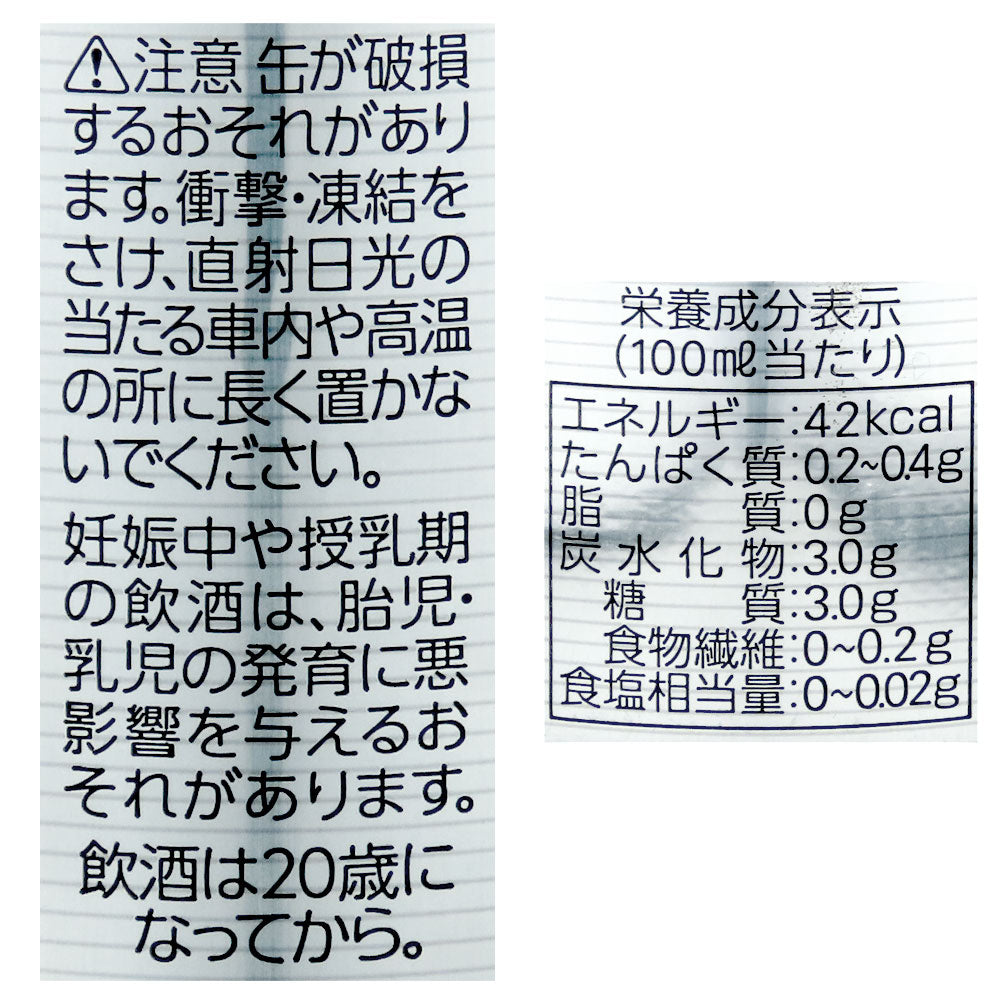 ⚠注意 缶が破損
するおそれがあり
ます。衝撃・凍結を
さけ、直射日光の
当たる車内や高温
の所に長く置かな
いでください。
妊娠中や授乳期
の飲酒は、胎児・
乳児の発育に悪
影響を与えるお
それがあります。
飲酒は20歳に
なってから。
栄養成分表示
(100mℓ当たり)
エネルギー:42kcal
たんぱく質:0.2~0.4g
脂質:0g
炭水化物:3.0g
糖質:3.0g
食物繊維:0~0.2g
食塩相当量:0~0.02g